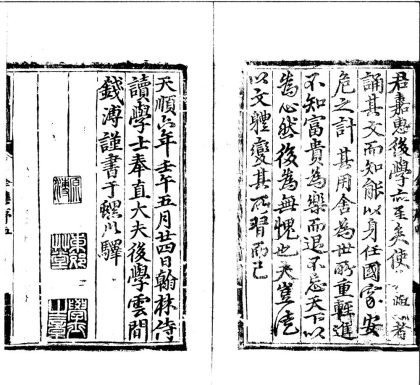 君嘉惠後學亦至矣使者
誦其文而知能以身任國家安
危之計其用舍為世所重輕進
不知富貴為樂而退不忘天下以
為心然後為無愧也夫豈徒
以文體變其所習而已
天順六年壬午五月廿四日翰林侍
讀學士奉直大夫後學雲間
錢溥謹書于螺川驛